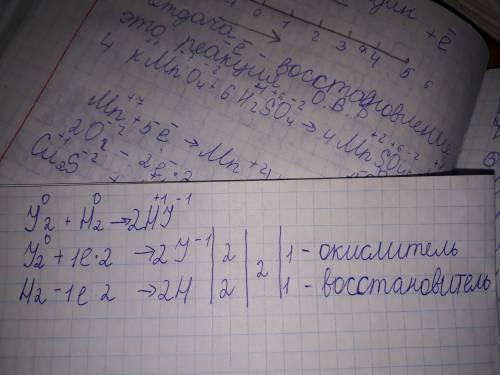 0 1 2 3 4 5 6
+ē
отдача ē - восстановление
это реакции О.В.Р
4 KMnO₄ + 6 H₂SO₄ → 4 MnSO₄
Mn⁺⁷ + 5ē → Mn
2O⁻²
Cu₂⁺¹S⁻² - 2ē
J₂⁰ + H₂⁰ → 2H⁺¹J⁻¹
J₂⁰ + 1e·2 → 2J⁻¹ | 2 | 2 | 1 - окислитель
H₂ - 1e·2 → 2H | 2 | 1 - восстановитель